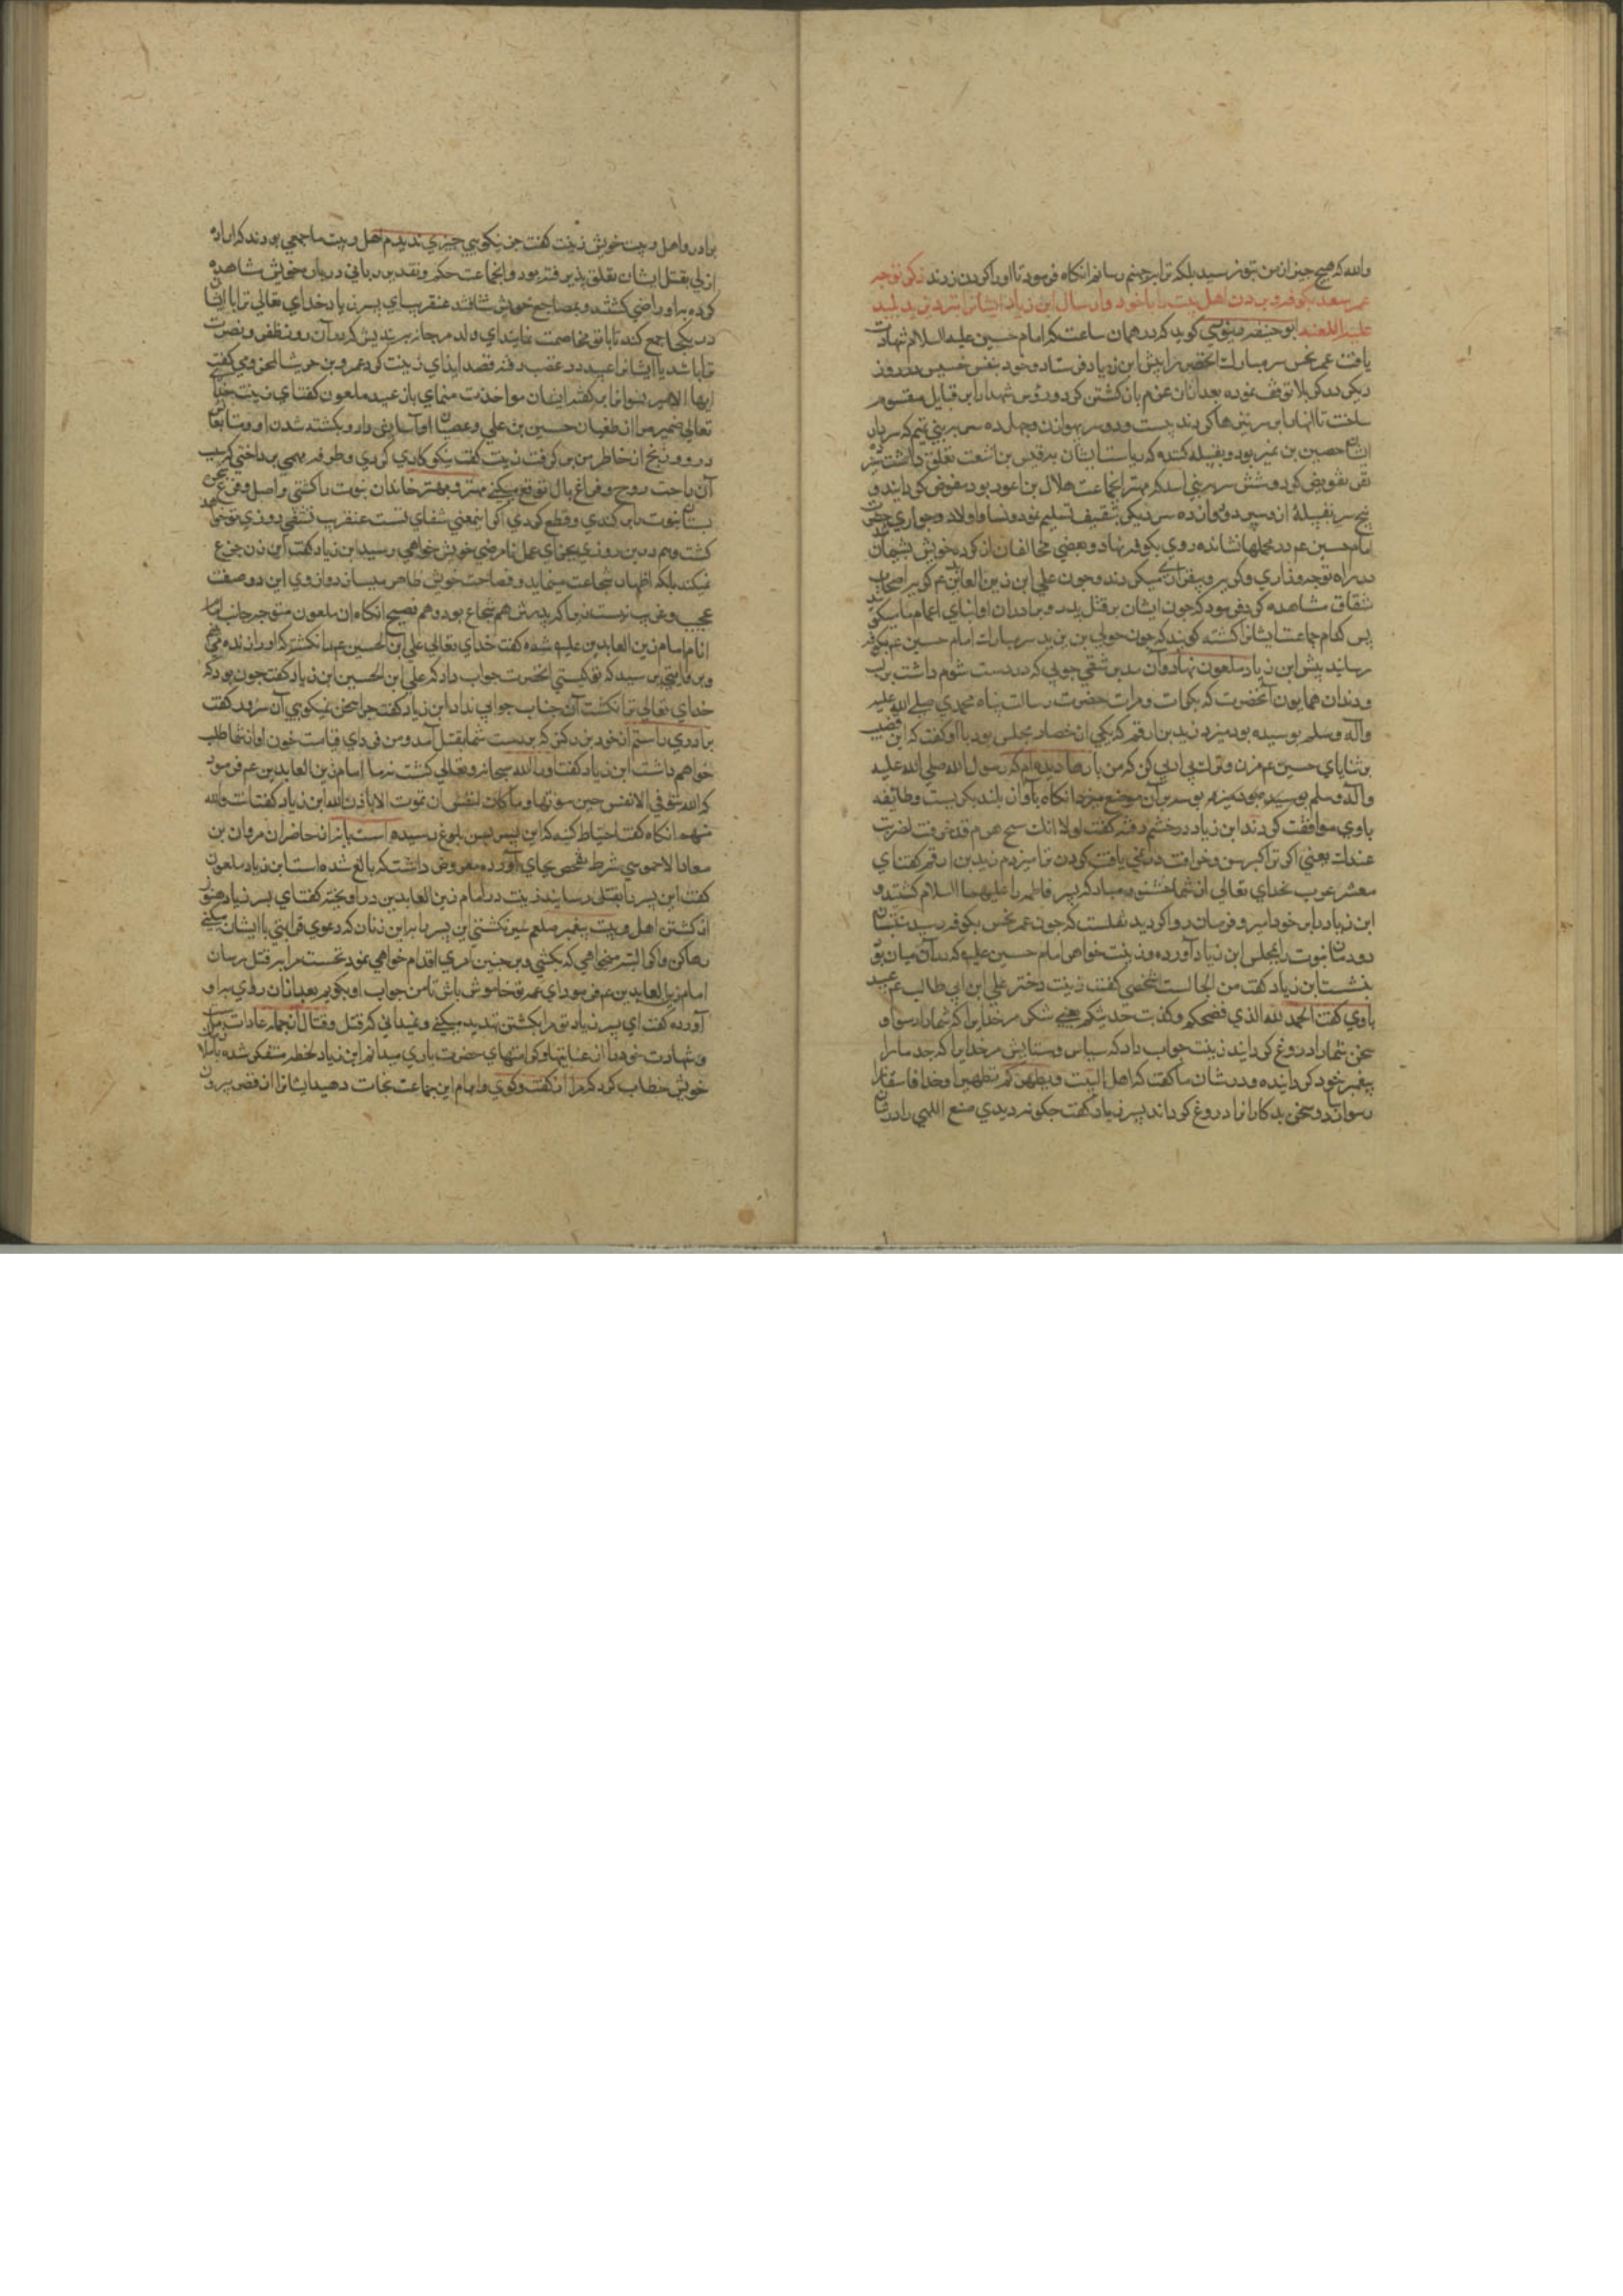 والله که هیچ چیز از من بتو نرسید بلکه ترا بجهنم رسانم انکاه فرمود تا او را کردن زدند ذکر توجه
عمر سعد بکوفه و بردن اهل بیت را با خود و ارسال ابن زیاد ایشانرا نزد یزید پلید
علیه اللعنه ابو حنیفه دینوری کوید که در همان ساعت که امام حسین علیه السلام شهادت
یافت عمر نحس سر مبارک انحضرت را پیش ابن زیاد فرستاد و خود بنفس خسیس دو روز
دیکر در کربلا توقف نموده بعد ازان عزم بازکشتن کرد و رؤس شهدا را بر قبایل مقسوم
ساخت تا انها را بر سر نیزها کردند بیست و دو سر بهوازن و چهارده سر به بنی تمیم که سردار
ایشان حصین بن نمیر بود و بقبیله کنده که ریاست ایشان بقیس بن اشعث تعلق داشت سیزده
سر تفویض کرد و شش سر ببنی اسد که مهتر انجماعت هلال بن اعور بود مفوض کردانید و
پنج سر بقبیلهٔ ازد سپرد و دوازده سر دیکر بثقیف تسلیم نمود و نسا و اولاد و جواری حضرت
امام حسین عم در محملها نشانده روی بکوفه نهاد و بعضی مخالفان از کرده خویش پشیمان شده
در راه نوحه و زاری و کریه و بیقراری میکردند و چون علی ابن زین العابدین عم کریه اصحاب
شقاق مشاهده کرد فرمود که چون ایشان بر قتل پدر و برادران و ابنای اعمام ما میکریند
پس کدام جماعت ایشانرا کشته کویند که چون خولی بن یزید سر مبارک امام حسین عم بکوفه
رسانید پیش ابن زیاد ملعون نهاد و آن سر بن شقی چوبی که در دست شوم داشت بر لب
و دندان همایون آنحضرت که بکرات و مرات حضرت رسالت پناه محمدی صلی الله علیه
وآله وسلم بوسیده بود میزد زید بن ارقم که یکی از حضار مجلس بود با او کفت که این قضیب
بر ثنایای حسین عم مزن و ترک بی ادبی کن که من بارها دیده ام که رسول الله صلی الله علیه
وآله وسلم بوسه بر آن موضع میزد انکاه بآواز بلند بکریست و طایفه
باوی موافقت کردند ابن زیاد در خشم رفته کفت لولا انک شیخ هرم قد خرفت لضربت
عنقک یعنی اکر ترا کبر سن و خرافت در نمی یافت کردن ترا میزدم زید بن ارقم کفت ای
معشر عرب خدای تعالی از شما خشنود مباد که پسر فاطمه را علیهما السلام کشتید و
ابن زیاد را بر خود امیر و فرمان روا کردید نقلست که چون عمر نحس بکوفه رسید نسوان
دودمان نبوت را بمجلس ابن زیاد آورده و زینت خواهر امام حسین علیه که در آن میان بود
بنشست ابن زیاد کفت من الجالسة شخصی کفت زینت دختر علی ابن ابی طالب عم عبید
باوی کفت الحمد لله الذی فضحکم وکذبت حدیثکم یعنی شکر مر خدایرا که شما را رسوا و
سخن شما را دروغ کردانید زینت جواب داد که سپاس و ستایش مر خدایرا که جد ما را
پیغمبر خود کردانیده و در شان ما کفت که اهل البیت ویطهرکم تطهیرا وخدا فاسقانرا
رسوا و سخن بدکارانرا دروغ کرداند پسر زیاد کفت چکونه دیدی صنع اللهی را در شان
برادر و اهل و بیت خویش زینت کفت جز نیکویی چیزی ندیدم اهل و بیت ما جمعی بودند که اراده
ازلی بقتل ایشان تعلق پذیرفته بود و انجماعت حکم و تقدیر ربانی در باره خویش مشاهده
کرده براو راضی کشتند و بمضاجع خویش شتافتند عنقریب ای پسر زیاد خدای تعالی ترا با ایشان
در یکجا جمع کند تا با تو مخاصمت نمایند ای ولد مرجانه بیندیش که در آن روز ظفر و نصرت
ترا باشد یا ایشانرا عبید در غضب رفته قصد ایذای زینت کرد عمرو بن حریث المخزومی کفت
ایها الامیر نسوانرا بر کفتهٔ ایشان مواخذت منمای باز عبید ملعون کفت ای زینت حق
تعالی ضمیر من از طغیان حسین بن علی و عصیان او آسایش داد و بکشته شدن او و متابعانش
درد و رنج از خاطر من بر کرفت زینت کفت نیکو کاری کردی و طرفه مهمی پرداختی که بسبب
آن راحت روح و فراغ بال توقع میکنی مهتر و بهتر خاندان نبوت را کشتی و اصل و فرع شجر
بستان نبوت را برکندی و قطع کردی اکر اینمعنی شفای تست عنقریب تشفی روزی تو خواهد
کشت و هم درین روزی بجزای عمل نا مرضی خویش خواهی رسید ابن زیاد کفت این زن جزع
نمیکند بلکه اظهار شجاعت مینماید و فصاحت خویش ظاهر میسازد و از وی این دو صفت
عجیب و غریب نیست زیرا که پدرش هم شجاع بود و هم فصیح انکاه ان ملعون متوجه جانب امام
انام امام زین العابدین علیه شده کفت خدای تعالی علی ابن الحسین عم را نکشت که او را زنده می بینم
و پرسید که تو کیستی انحضرت جواب داد که علی ابن الحسین ابن زیاد کفت چون بود که
خدای تعالی ترا نکشت آن جناب جوابی نداد ابن زیاد کفت چرا سخن نمیکویی آن سرور کفت
برادری داشتم از خود بزرکتر که بدست شما بقتل آمد و من فردای قیامت خون او از شما طلب
خواهم داشت ابن زیاد کفت او را الله سبحانه وتعالی کشت نه ما امام زین العابدین عم فرمود
که الله یتوفی الانفس حین موتها وما کان لنفس ان تموت الا باذن الله ابن زیاد کفت انت والله
منهم انکاه کفت احتیاط کنید که این پسر بسن بلوغ رسیده است یا نه از حاضران مروان بن
معاذ الاحموسی شرط تفحص بجای آورده معروض داشت که بالغ شده است ابن زیاد ملعون
کفت این پسر را بقتل رسانید زینت در امام زین العابدین در آویخته کفت ای پسر زیاد هنوز
از کشتن اهل و بیت پیغمبر صلعم سیر نکشتی این پسر را برای این زنان که دعوی قرابتی با ایشان میکنی
رها کن و اکر البته میخواهی که بکشی و بر چنین امری اقدام خواهی نمود نخست مرا بر قتل رسان
امام زین العابدین عم فرمود ای عمه تو خاموش باش تا من جواب او بکویم بعد ازان روی براو
آورده کفت ای پسر زیاد تو مرا بکشتن تهدید میکنی و نمیدانی که قتل و قتال از جمله عادات ماست
و شهادت خود را از عنایتها و کرامتهای حضرت باری میدانم ابن زیاد لحظه متفکر شده با ملازمان
خویش خطاب کرد که مرا از کفت و کوی و ابرام این جماعت نجات دهید ایشانرا از قصر بیرون